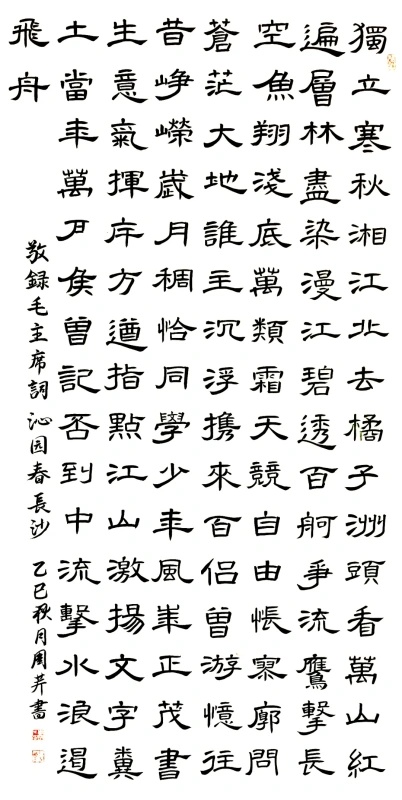 獨立寒秋湘江北去橘子洲頭看萬山紅
遍層林盡染漫江碧透百舸爭流鷹擊長
空魚翔淺底萬類霜天競自由悵寥廓問
蒼茫大地誰主沉浮携來百侶曾游憶往
昔崢嶸歲月稠恰同學少年風華正茂書
生意氣揮斥方遒指點江山激揚文字糞
土當年萬户侯曾記否到中流擊水浪遏
飛舟
敬録毛主席詞沁园春長沙 乙巳秋月周書